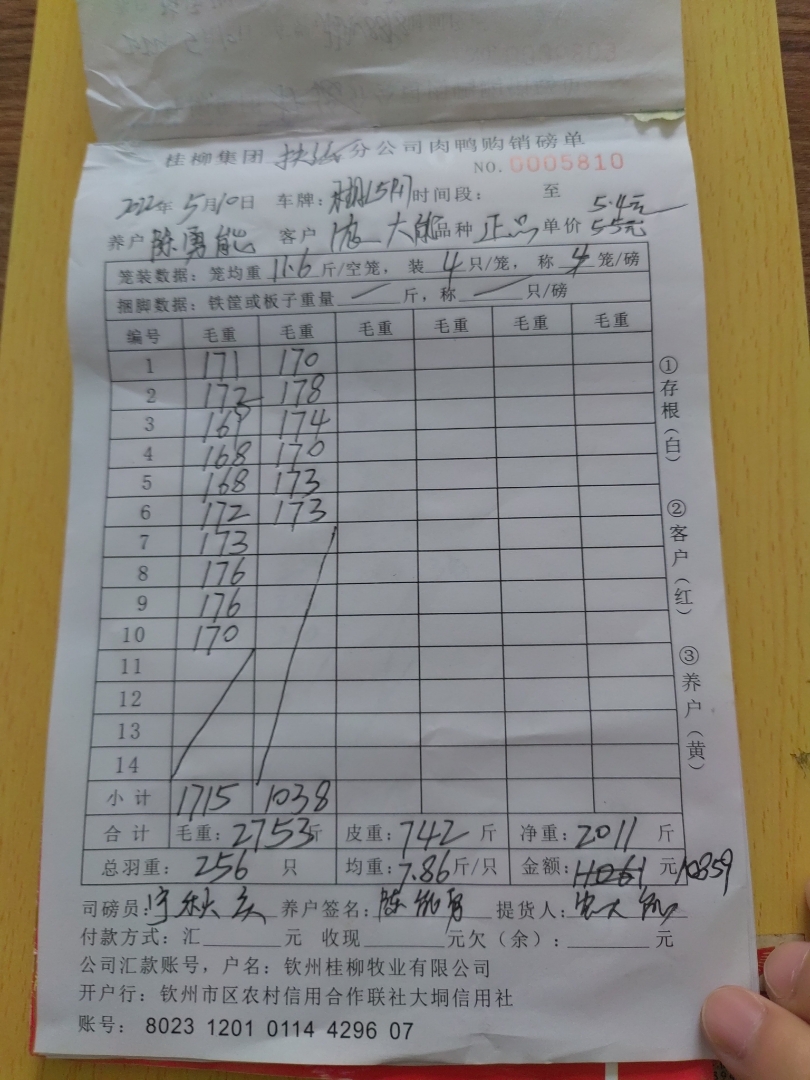 桂柳集团 扶绥 分公司肉鸭购销磅单
NO.0005810
2022年5月10日 车牌： 时间段： 至
5.4元
养户 陈勇能 客户 大能 品种 正品 单价 5.5元
笼装数据：笼均重 11.6 斤/空笼， 装 4 只/笼， 称 4 笼/磅
捆脚数据：铁筐或板子重量 / 斤，称 / 只/磅
编号 毛重 毛重 毛重 毛重 毛重 毛重
1 171 170
2 172 178
3 169 174
4 168 170
5 168 173
6 172 173
7 173
8 176
9 176
10 170
11
12
13
14
小计 1715 1038
合计 毛重：2753斤 皮重：742斤 净重：2011斤
总羽重：256只 均重：7.86斤/只 金额：11061元 10859
司磅员： 养户签名：陈能勇 提货人：
付款方式：汇 元 收现 元欠（余）： 元
公司汇款账号，户名：钦州桂柳牧业有限公司
开户行：钦州市区农村信用合作联社大垌信用社
账号：8023 1201 0114 4296 07
①存根（白）
②客户（红）
③养户（黄）